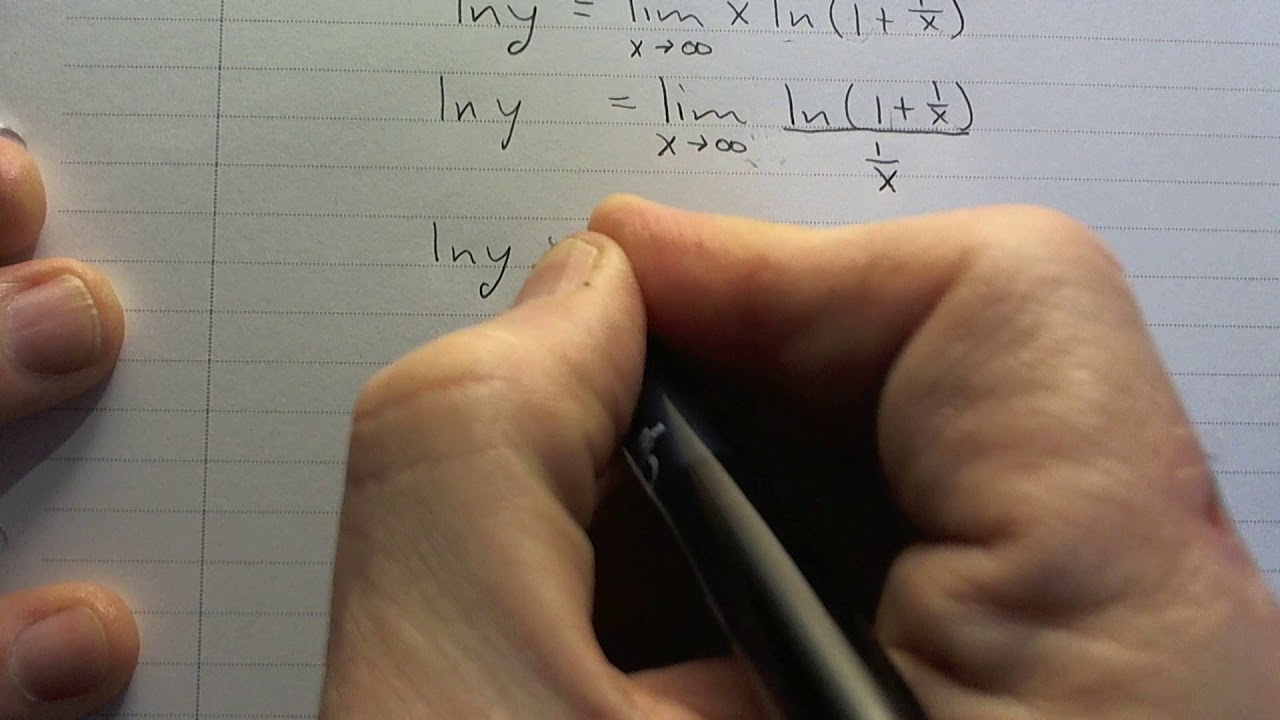 ln y = lim x ln(1 + 1/x)
x→∞
ln y = lim ln(1 + 1/x)
x→∞ 1/x
ln y